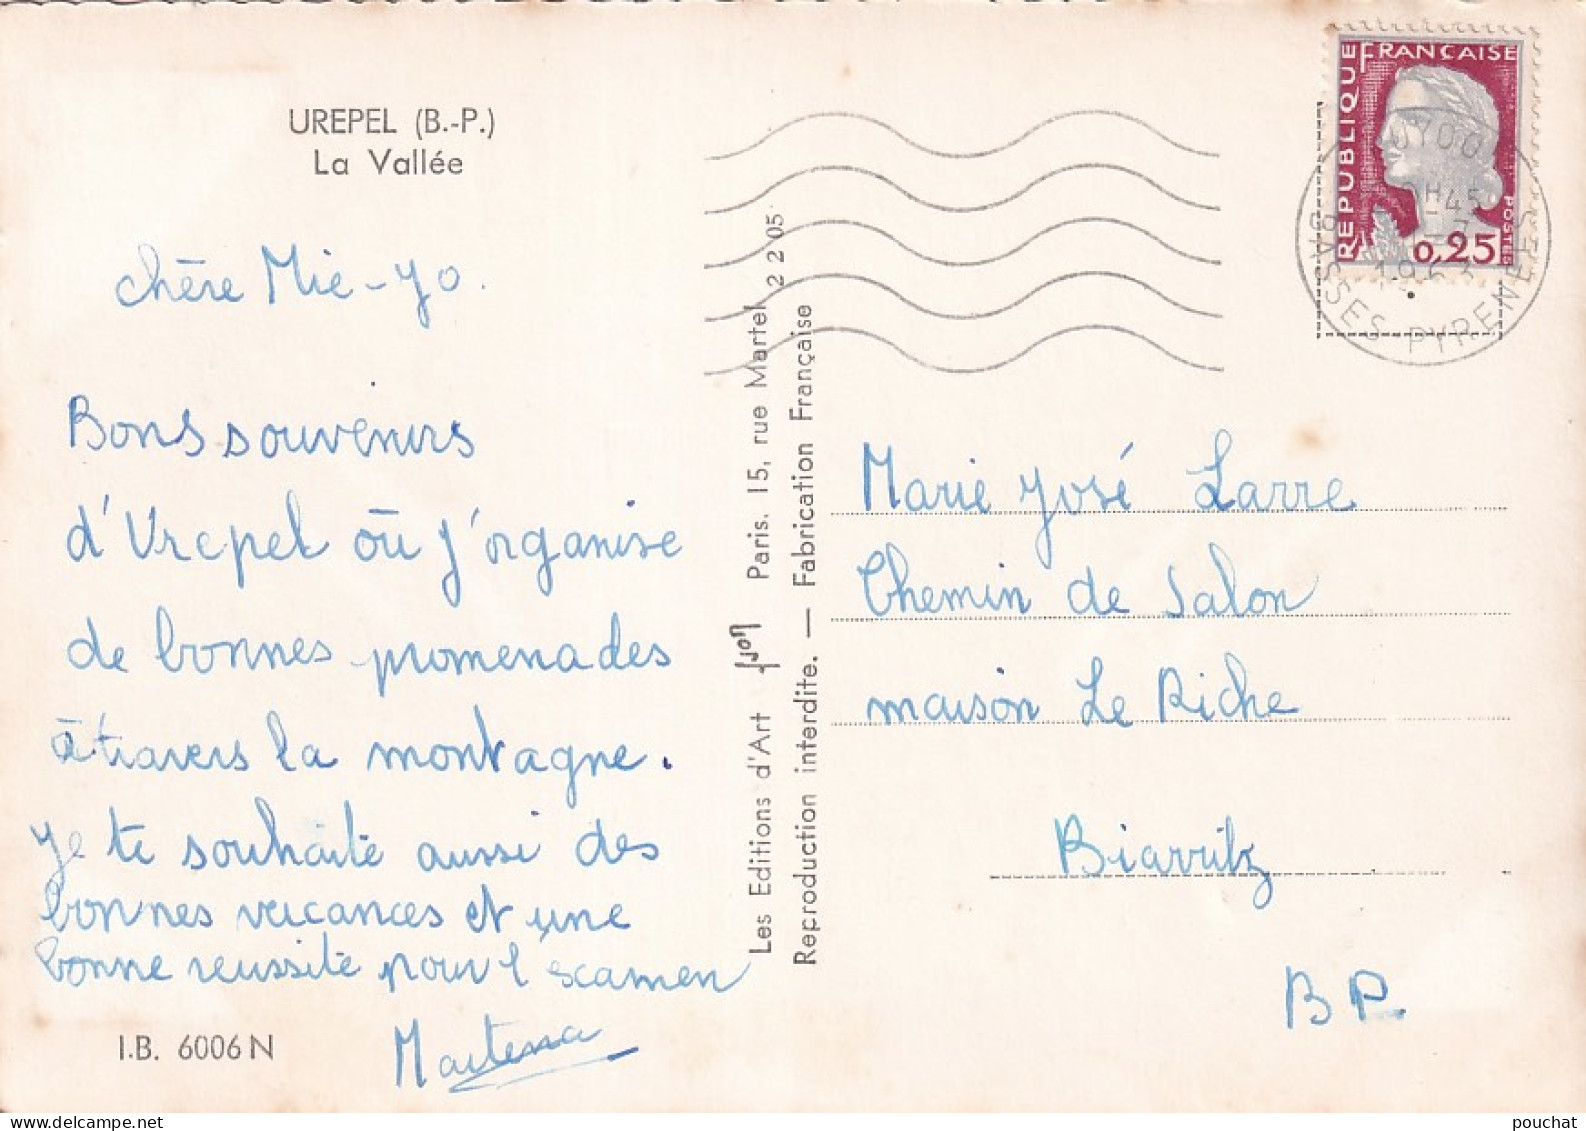 UREPEL (B.-P.)
La Vallée
chère Mie-yo.
Bons souvenirs
d'Urepel où j'organise
de bonnes promenades
à travers la montagne.
Je te souhaite aussi des
bonnes vacances et une
bonne reussite pour l'scamen
I.B. 6006 N
Les Editions d'Art yvon Paris. 15, rue Martel 2 2 05
Reproduction interdite. — Fabrication Française
REPUBLIQUE FRANÇAISE
POSTES
0,25
1963
BASSES-PYRENEES
Marie José Larre
Chemin de Salon
maison Le Riche
Biarritz
B P.
pouchat